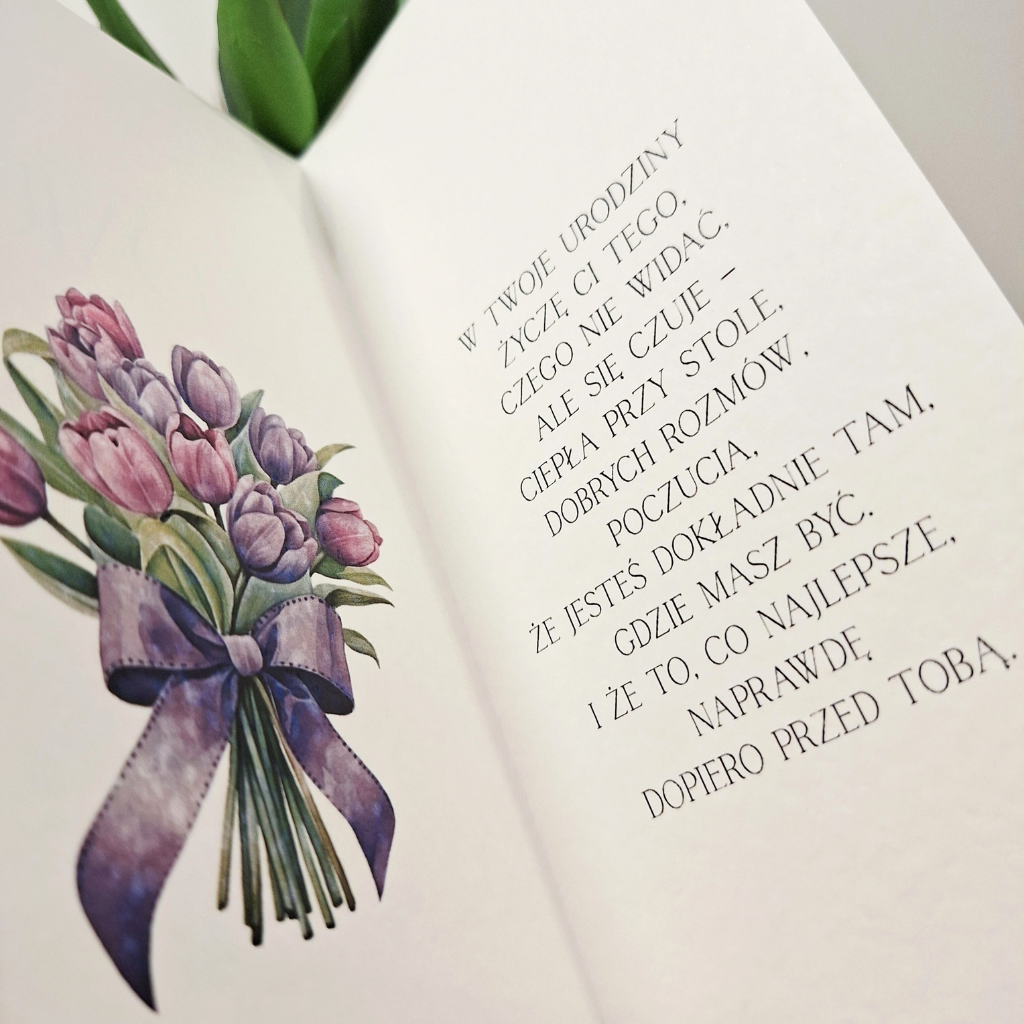 W TWOJE URODZINY
ŻYCZĘ CI TEGO,
CZEGO NIE WIDAĆ,
ALE SIĘ CZUJE –
CIEPŁA PRZY STOLE,
DOBRYCH ROZMÓW,
POCZUCIA,
ŻE JESTEŚ DOKŁADNIE TAM,
GDZIE MASZ BYĆ.
I ŻE TO, CO NAJLEPSZE,
NAPRAWDĘ
DOPIERO PRZED TOBĄ.